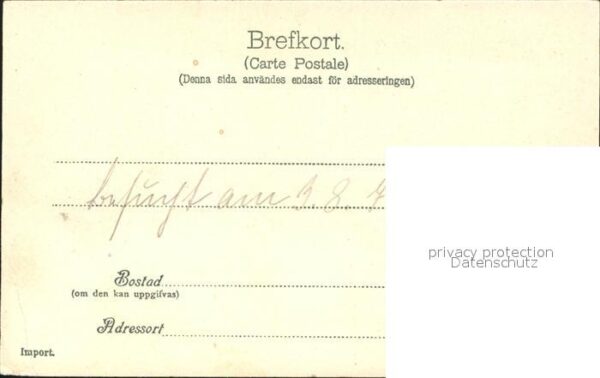 Brefkort.
(Carte Postale)
(Denna sida användes endast för adresseringen)
besucht am 3.8.
privacy protection
Datenschutz
Bostad
(om den kan uppgifvas)
Adressort
Import.